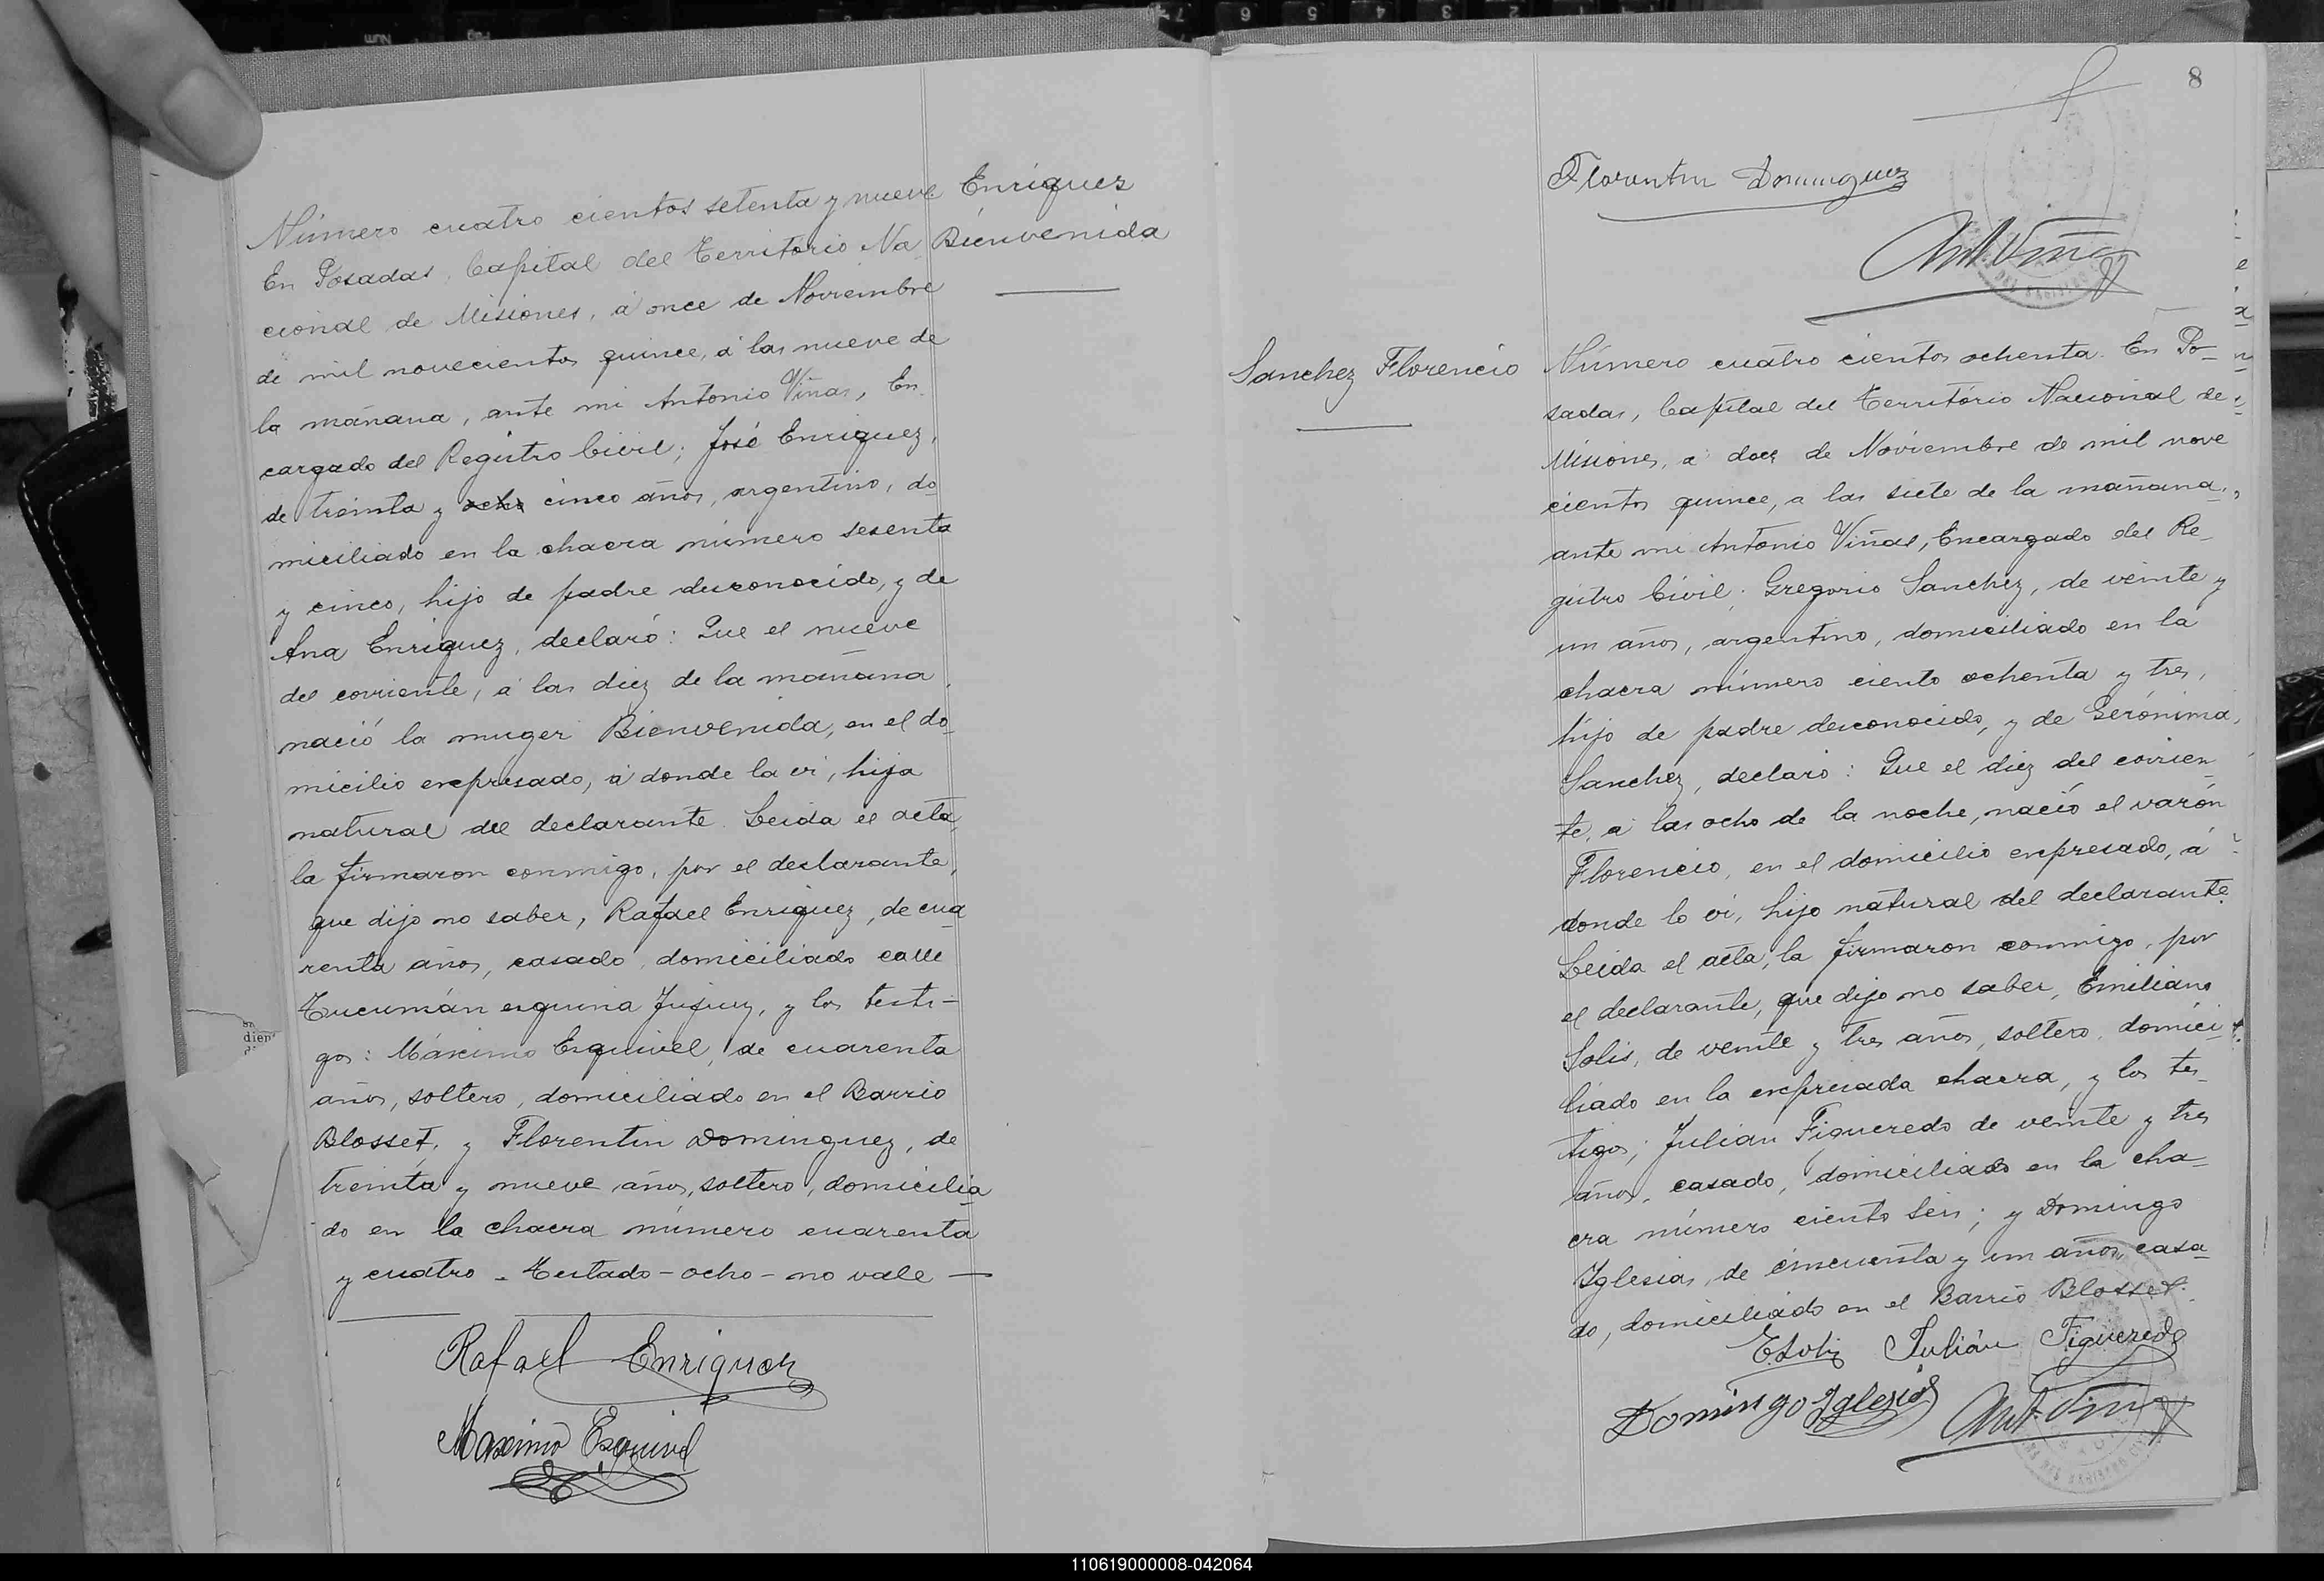 Número cuatro cientos setenta y nueve
En Posadas, Capital del Territorio Na
cional de Misiones, á once de Noviembre
de mil novecientos quince, á las nueve de
la mañana, ante mi Antonio Viñas, En
cargado del Registro Civil; José Enriquez,
de treinta y ocho cinco años, argentino, do
miciliado en la chacra número sesenta
y cinco, hijo de padre desconocido, y de
Ana Enriquez, declaró: Que el nueve
del corriente, á las diez de la mañana
nació la muger Bienvenida, en el do
micilio expresado, á donde la vi, hija
natural del declarante. Leida el acta,
la firmaron conmigo, por el declarante,
que dijo no saber, Rafael Enriquez, de cua
renta años, casado, domiciliado calle
Tucumán esquina Jujuy, y los testi-
gos: Máximo Esquivel, de cuarenta
años, soltero, domiciliado en el Barrio
Blosset, y Florentin Dominguez, de
treinta y nueve años, soltero, domicilia
do en la chacra número cuarenta
y cuatro - Testado - ocho - no vale —
Rafael Enriquez
Maximo Esquivel
Enriquez
Bienvenida
8
Florentin Dominguez
Ant Viñas
Sanchez Florencio
Número cuatro cientos ochenta. En Po-
sadas, Capital del Território Nacional de
Misiones, á doce de Noviembre de mil nove
cientos quince, a las siete de la mañana,
ante mi Antonio Viñas, Encargado del Re-
gistro Civil; Gregorio Sanchez, de veinte y
un años, argentino, domiciliado en la
chacra número ciento ochenta y tres,
hijo de padre desconocido, y de Gerónima
Sanchez, declaró: Que el diez del corrien-
te, á las ocho de la noche, nació el varón
Florencio, en el domicilio expresado, á
donde lo vi, hijo natural del declarante.
Leida el acta, la firmaron conmigo, por
el declarante, que dijo no saber, Emiliano
Solis, de veinte y tres años, soltero, domici
liado en la expresada chacra, y los tes-
tigos; Julian Figueredo de veinte y tres
años, casado, domiciliado en la cha-
cra número ciento seis; y Domingo
Iglesias, de cincuenta y un años, casa-
do, domiciliado en el Barrio Blosset.
E Solis Julián Figueredo
Domingo Iglesias Ant. Viñas
110619000008-042064